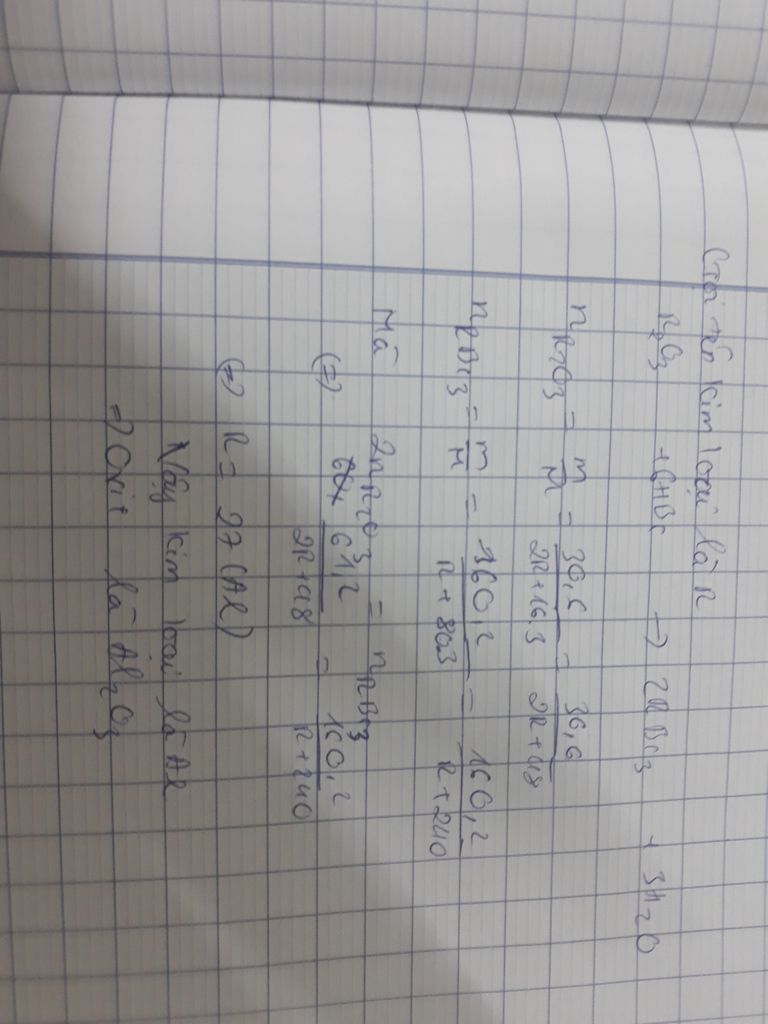 Gọi tên kim loại là R
R2O3 + 6HBr → 2RBr3 + 3H2O
nR2O3 = m/M = 30,6/2R+16.3 = 30,6/2R+48
nRBr3 = m/M = 160,2/R+80.3 = 160,2/R+240
Mà 2nR2O3 = nRBr3
(=) 61,2/2R+48 = 160,2/R+240
(=) R = 27 (Al)
Vậy kim loại là Al
=) Oxit là Al2O3